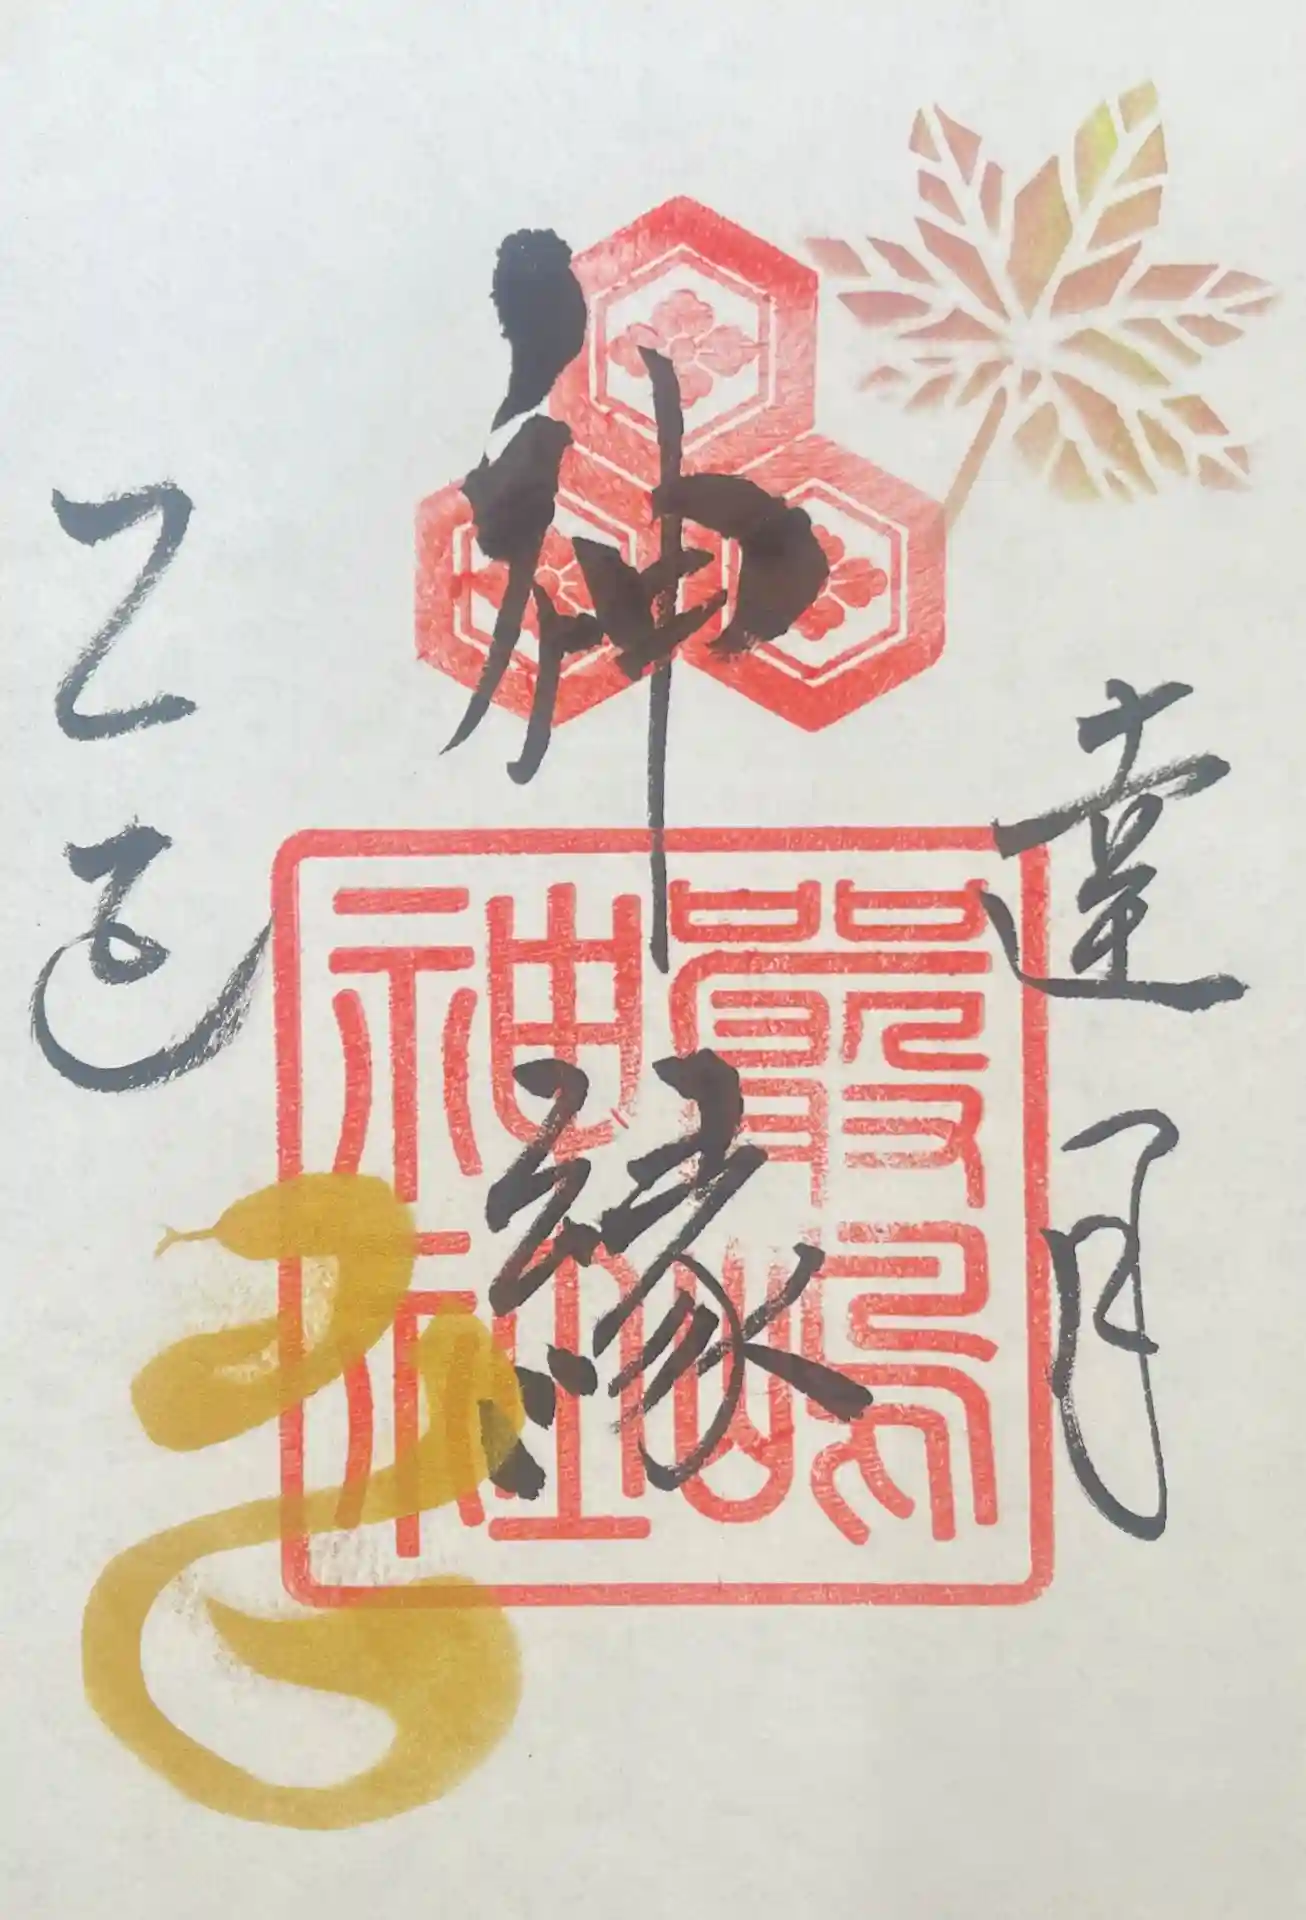 達月
神縁
嚴嶋
神社
乙巳